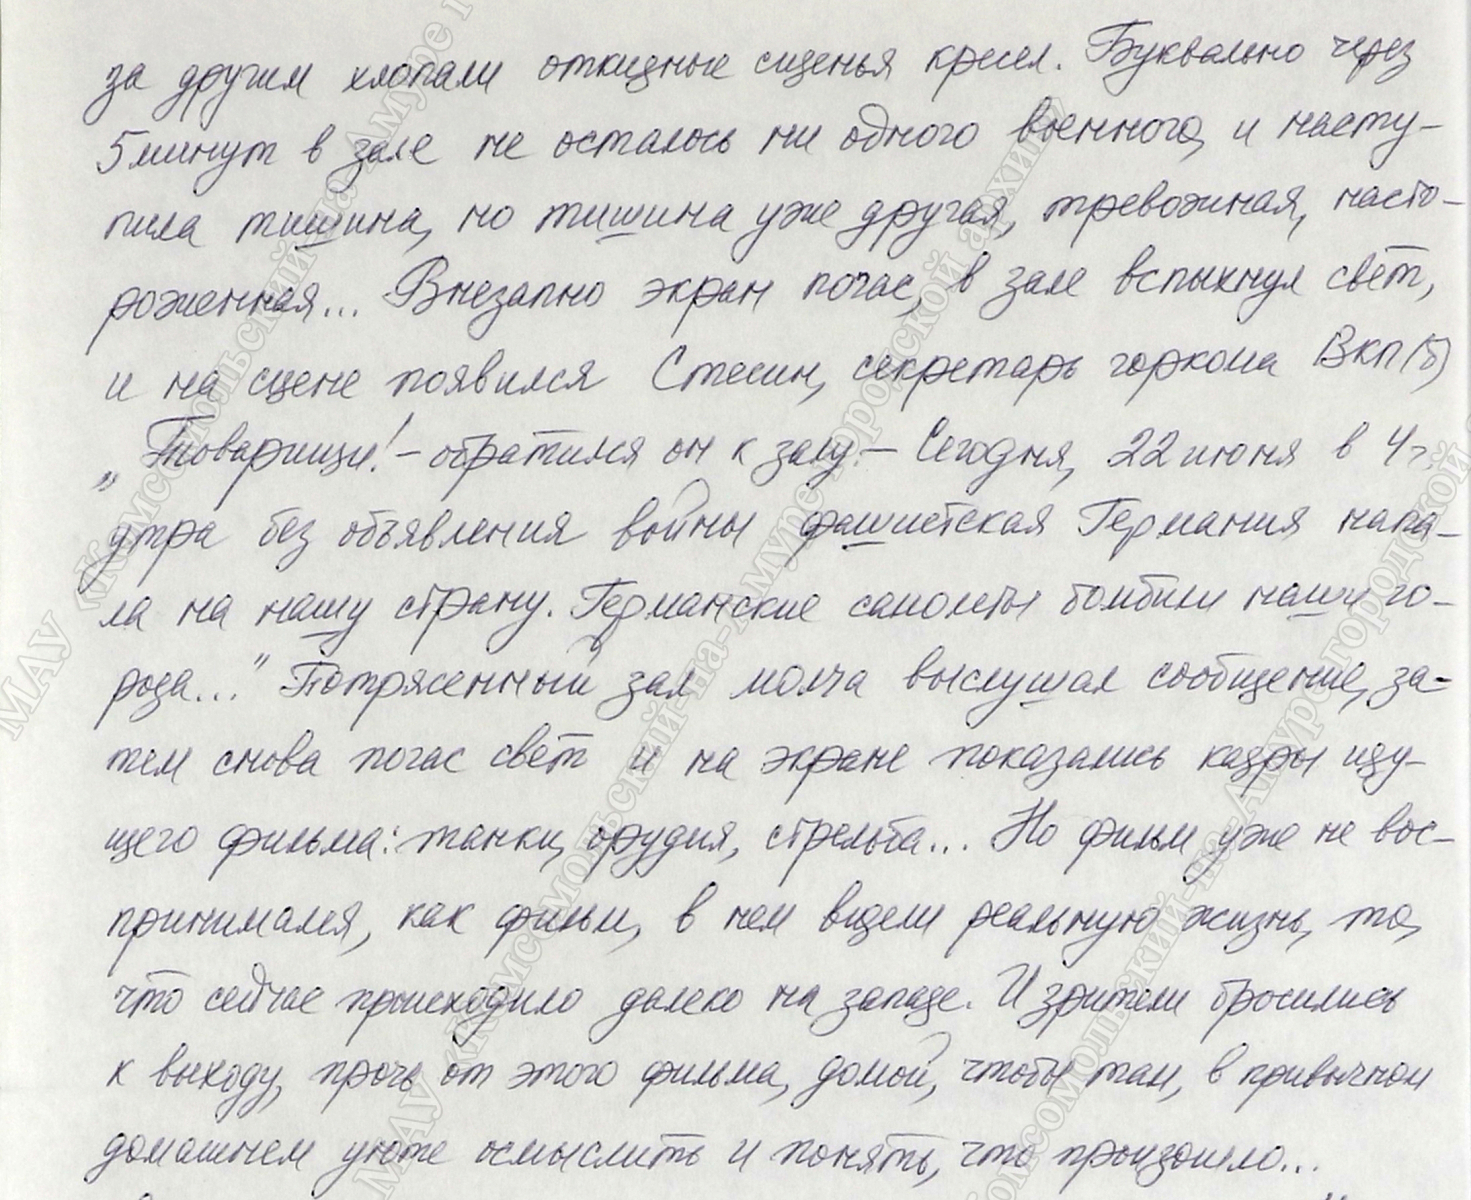 за другим хлопали откидные сиденья кресел. Буквально через
5 минут в зале не осталось ни одного военного, и насту-
пила тишина, но тишина уже другая, тревожная, насто-
роженная... Внезапно экран погас, в зале вспыхнул свет,
и на сцене появился Стесин, секретарь горкома ВКП(б)
„Товарищи! – обратился он к залу. – Сегодня, 22 июня в 4 ч.
утра без объявления войны фашистская Германия напа-
ла на нашу страну. Германские самолеты бомбили наши го-
рода..." Потрясенный зал молча выслушал сообщение, за-
тем снова погас свет и на экране показались кадры иду-
щего фильма: танки, орудия, стрельба... Но фильм уже не вос-
принимался, как фильм, в нем видели реальную жизнь, то,
что сейчас происходило далеко на западе. И зрители бросились
к выходу, прочь от этого фильма, домой, чтобы там, в привычном
домашнем уюте осмыслить и понять, что произошло...
МАУ «Комсомольский-на-Амуре городской архив»